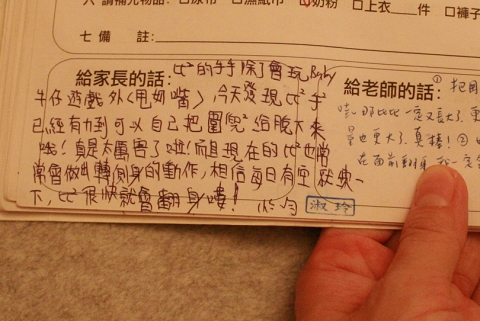 六 請補充物品: □尿布 □濕紙巾 □奶粉 □上衣___件 □褲子
七 備 註:
給家長的話: 比²的手手除了會玩Baby
牛仔遊戲外(甩奶嘴), 今天發現比²手
已經有力到可以自己把圍兜²給脫下來
哦! 真是太厲害了啦! 而且現在的比²也常
常會做出轉側身的動作, 相信每日有空就練一
下, 比²很快就會翻身嘍!
淑玲
給老師的話: ①
哇~那比比一定又長了
也更大了, 真棒! ②
在面前翻